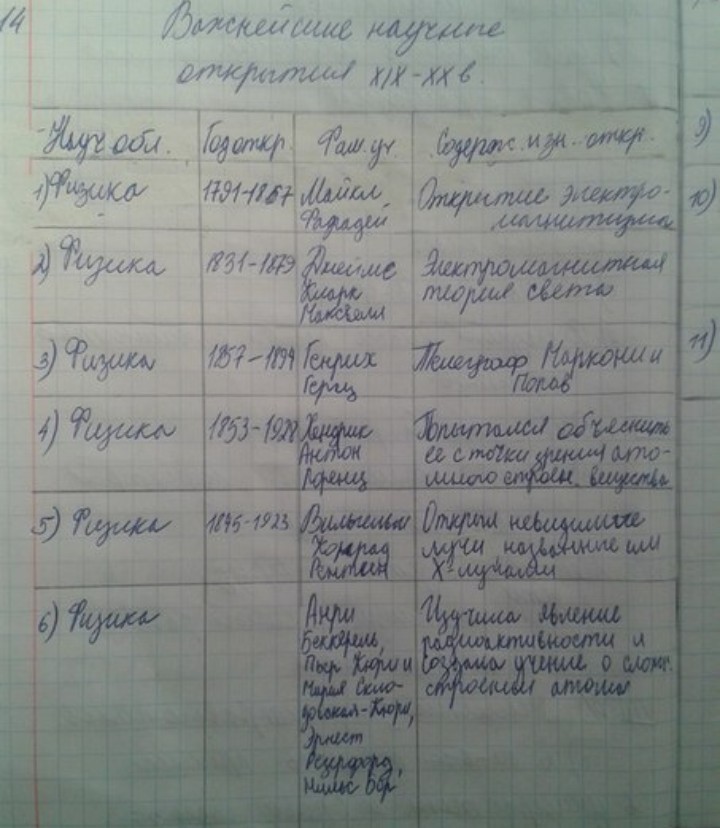 14
Важнейшие научные
открытия XIX-XX в.
Науч обл. Год откр. Фам. уч. Содерж. изн. откр.
1) Физика 1791-1867 Майкл Открытие электро-
Фарадей магнитизма
2) Физика 1831-1879 Джеймс Электромагнитная
Кларк теория света
Максвелл
3) Физика 1857-1894 Генрих Телеграф Маркони и
Герц Попов
4) Физика 1853-1928 Хендрик Попытался объяснить
Антон ее с точки зрения ато-
Лоренц много строен. вещества
5) Физика 1845-1923 Вильгельм Открыл невидимые
Конрад лучи, названные им
Рентген X-лучами
6) Физика Анри Изучила явление
Беккерель, радиоактивности и
Пьер Кюри и создала учение о слож.
Мария Скло- строении атома
довская-Кюри,
Эрнест
Резерфорд,
Нильс Бор
9)
10)
11)